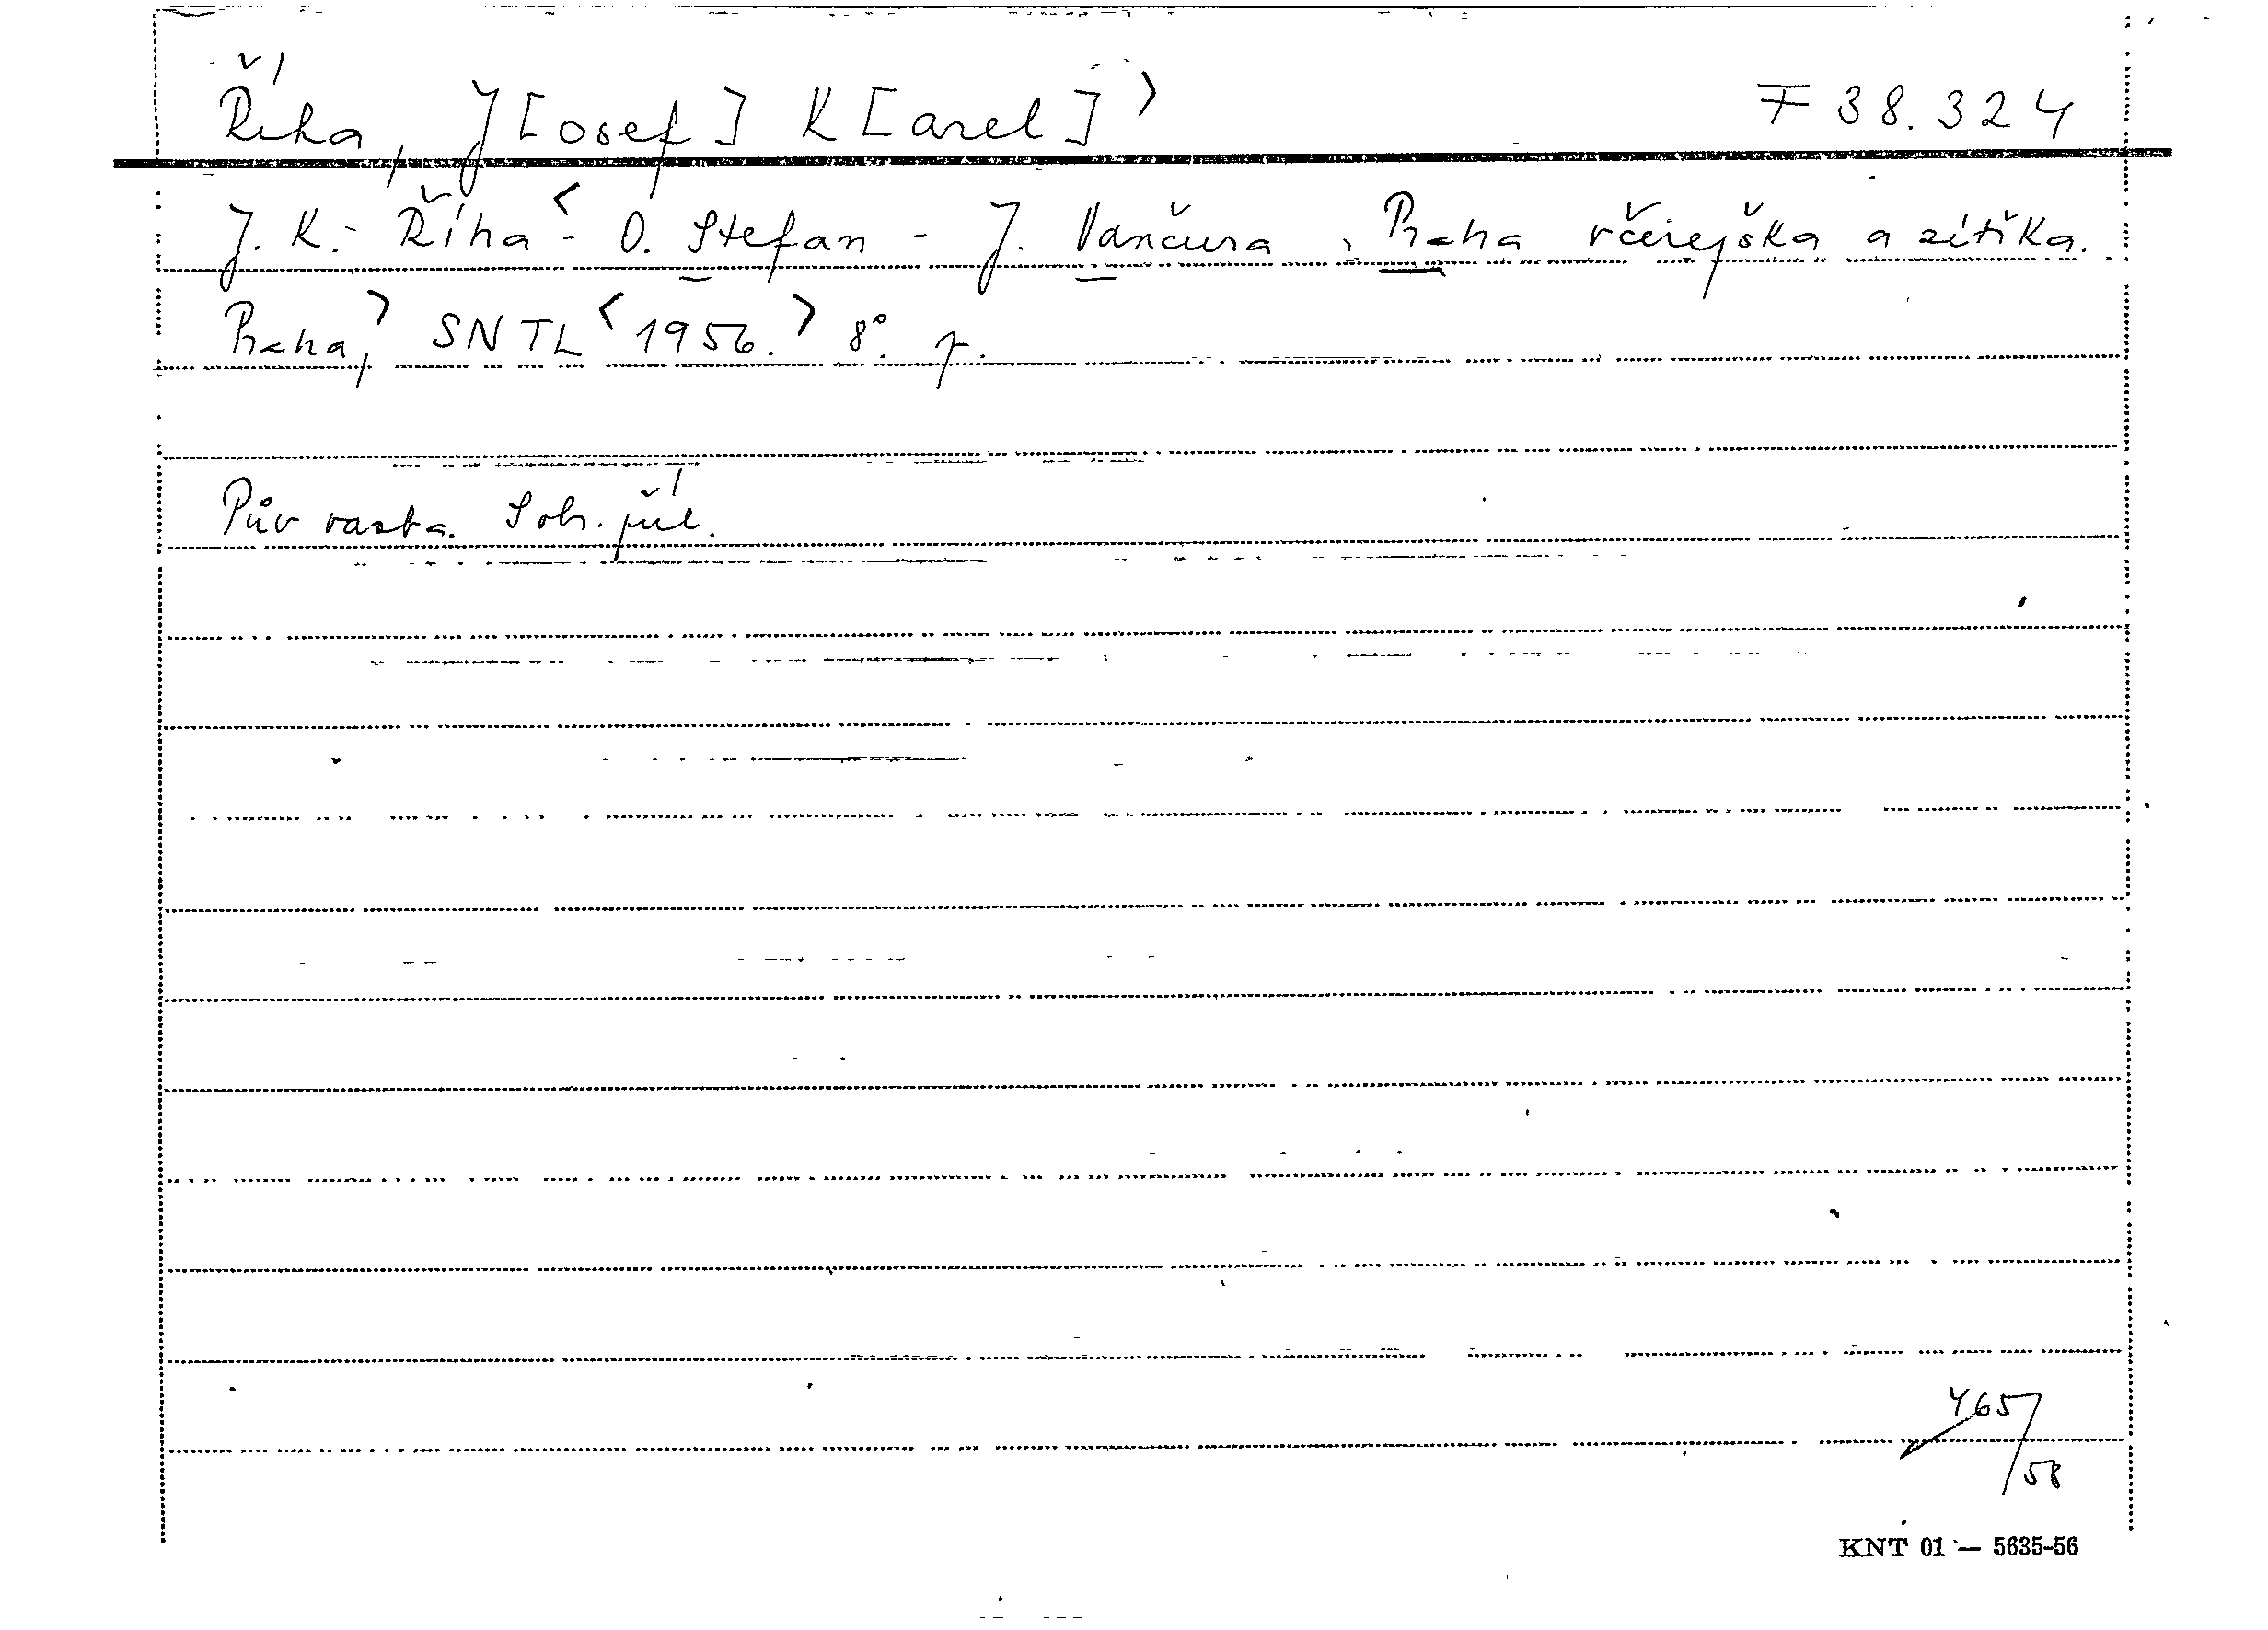 Říha, J[osef] K[arel] > F 38.324
J. K. - Říha < - O. Stefan - J. Vančura, Praha včerejška a zítřka.
Praha, > SNTL < 1956. > 8°. p.
Pův vazba. Soh. příl.
465/58
KNT 01 — 5635-56